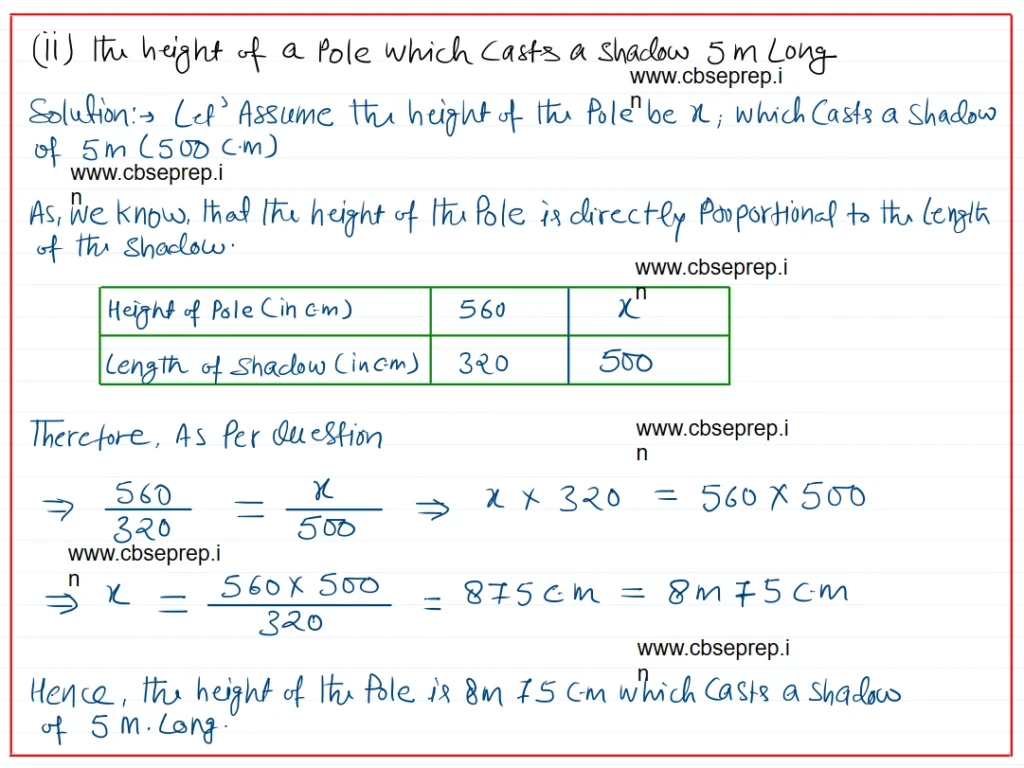 (ii) the height of a pole which casts a shadow 5 m Long
www.cbseprep.i
n
Solution:→ Let' Assume the height of the Pole be x, which Casts a shadow
of 5m (500 c.m)
www.cbseprep.i
n
As, we know, that the height of the Pole is directly Proportional to the Length
of the shadow.
www.cbseprep.i
n
Height of Pole (in c.m) 560 x
Length of Shadow (in c.m) 320 500
Therefore, As Per Question
www.cbseprep.i
n
⇒ 560/320 = x/500 ⇒ x × 320 = 560 × 500
www.cbseprep.i
n
⇒ x = 560 × 500/320 = 875 c.m = 8 m 75 c.m
www.cbseprep.i
n
Hence, the height of the Pole is 8m 75 c.m which casts a shadow
of 5 m. Long.